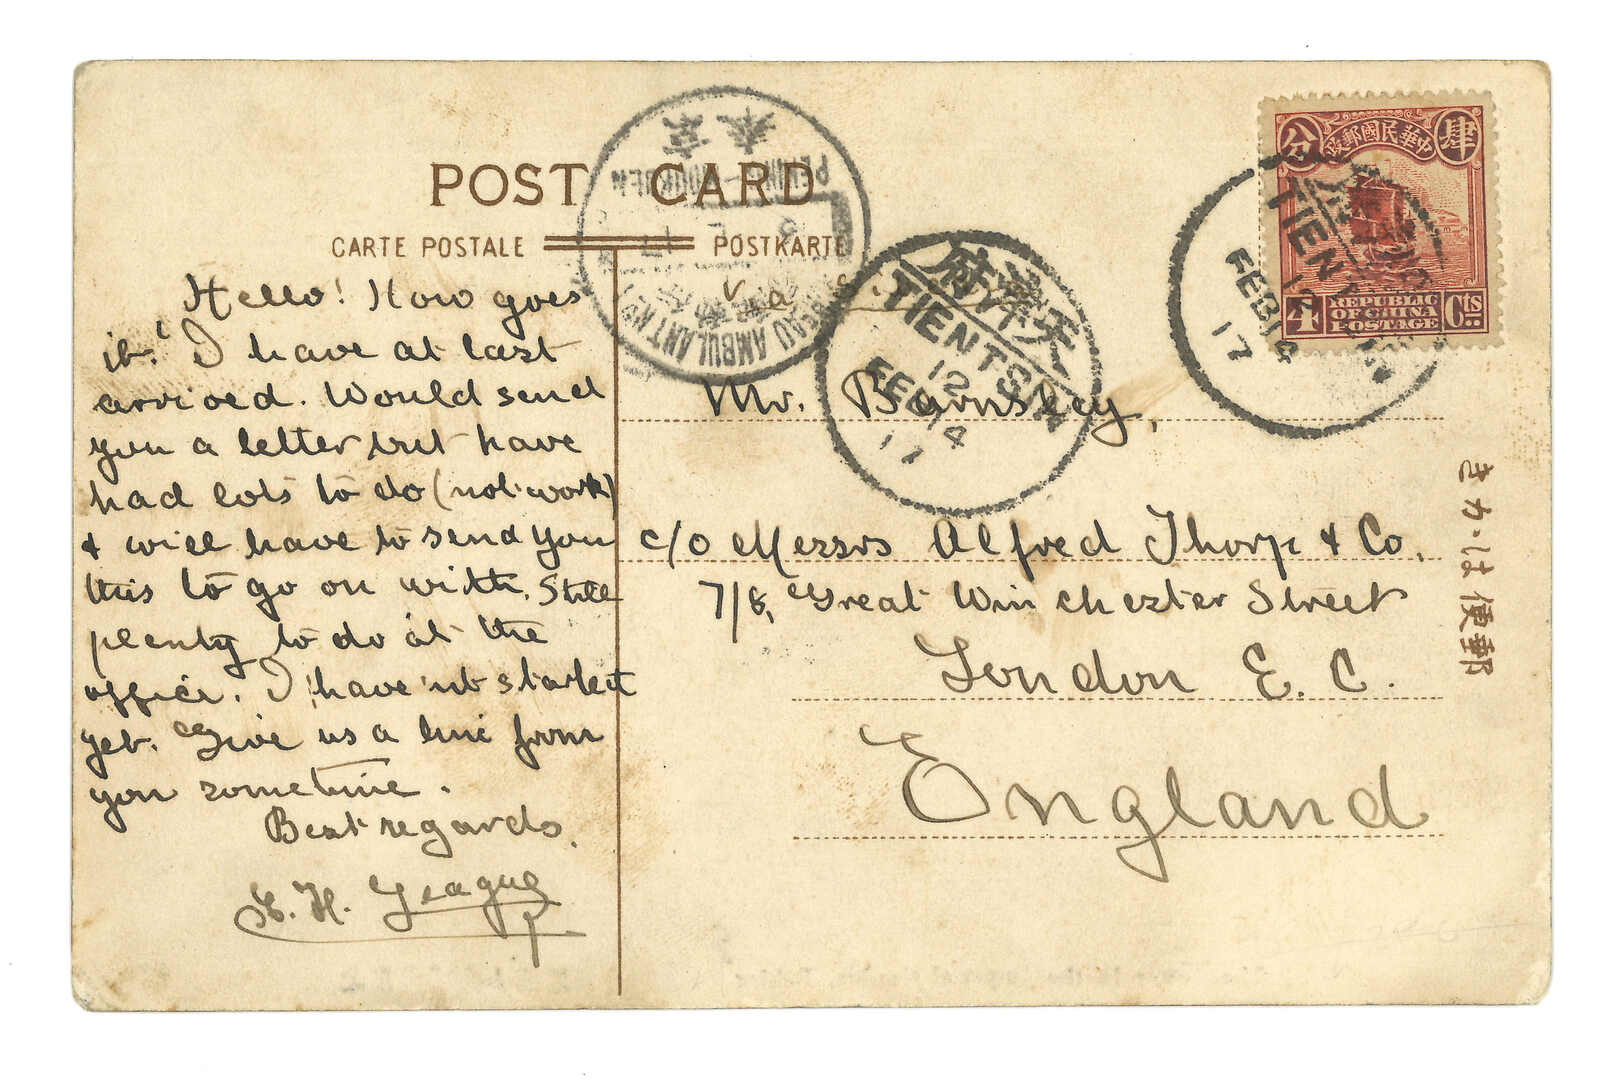 POST CARD
CARTE POSTALE POSTKARTE
Hello! How goes
it? I have at last
arrived. Would send
you a letter but have
had lots to do (not work)
& will have to send you
this to go on with. Still
plenty to do at the
office. I have'nt started
yet. Give us a line from
you sometime.
Best regards.
H. League
京奉
PEKING-MOUKDEN
BUREAU AMBULANT No
17
天津府
TIENTSIN
12
FEB 14
17
TIENTSIN
12
FEB 14
17
中華民國郵政
肆
分
4 Cts
REPUBLIC
OF CHINA
POSTAGE
via S.
Mr. Barnsley,
c/o Messrs Alfred Thorp & Co.
7/8, Great Winchester Street
London E. C.
England
きかは便郵